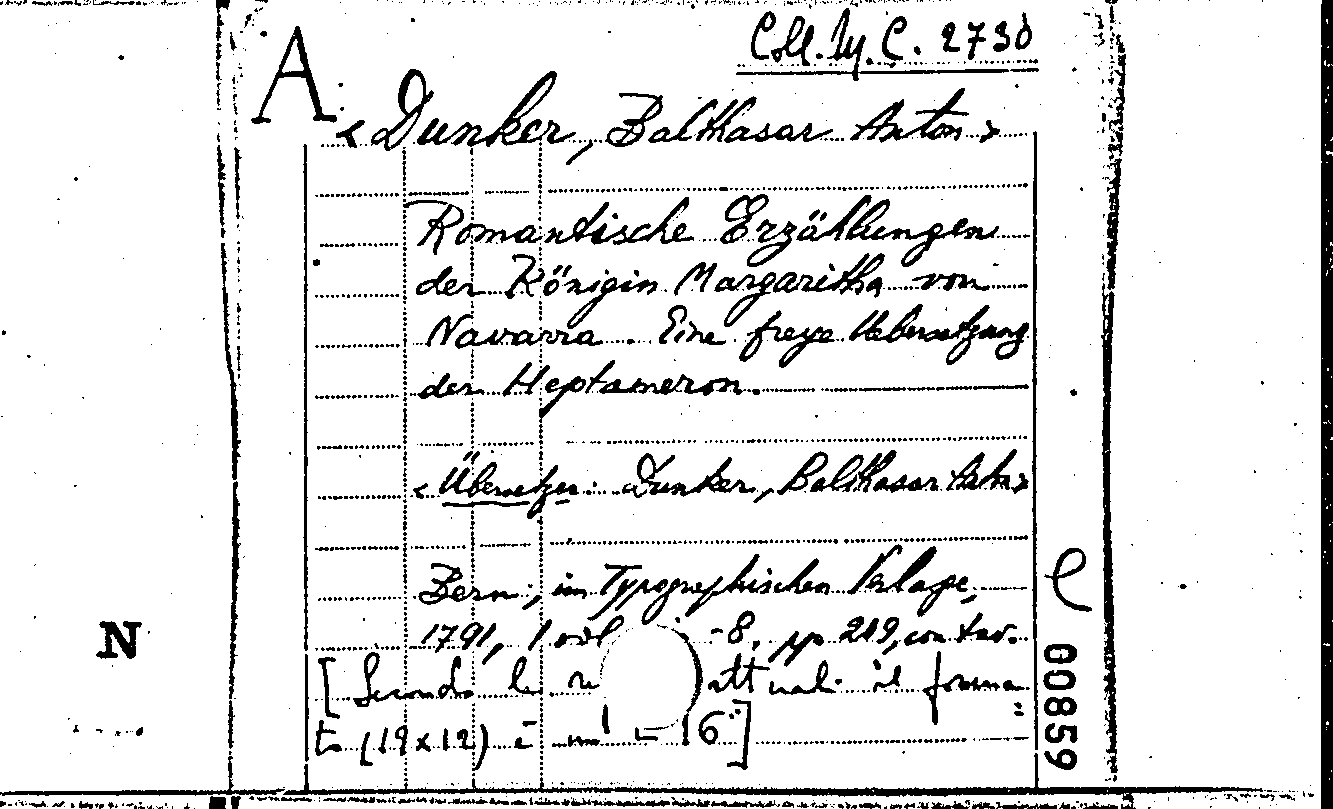 A
Coll. Ly. C. 2730
<Dunker, Balthasar Anton>
Romantische Erzählungen
der Königin Margaritha von
Navarra. Eine freye Uebersetzung
der Heptameron.
<Übersetzer: Dunker, Balthasar Anton>
Bern, im Typographischen Verlage,
1791, 1 vol -8, pp 219, con tav.
[Secondo le attuali il forma=
to (19x12) è un - 16°]
e
00859
N